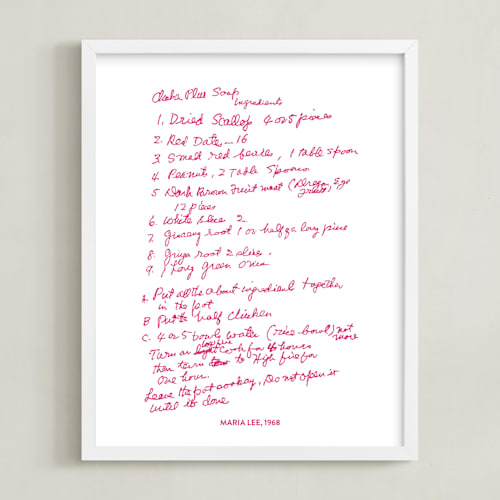 Soup
Ingredients
1. Dried Scallop 4 or 5 pieces
2. Red Date - 16
3. Small red beans, 1 Table spoon
4. Peanuts, 2 Table Spoons
5 Dark Brown Fruit meat (Dragon Eye
Fruit)
12 pieces
6. White 2
7. Ginseng root 1 or half of a long piece
8. root 2 slices.
9. 1 Long green Onion
A. Put all the about ingredient together
in the pot
B Put half Chicken
C. 4 or 5 bowls water (rice bowl) not
more
Turn on low fire Cook for 4 hours
then turn to High fire for
One hour.
Leave the pot, Do not open it
until it's done
MARIA LEE, 1968